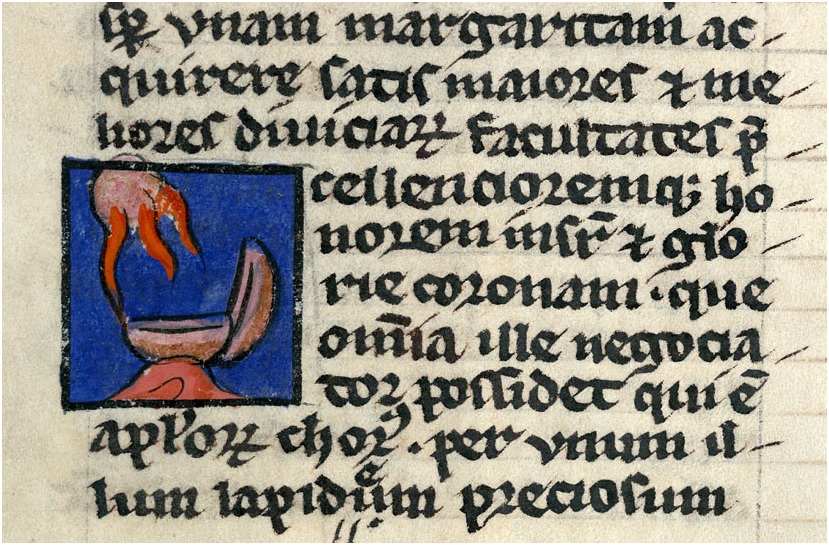 sꝑ vnam margaritam ac-
quirere satis maiores ⁊ me-
liores diuiciaꝝ facultates p̄-
cellencioremqꝫ ho-
norem insr̄ ⁊ glo-
rie coronam · que
om̄ia ille negocia-
tor possidet qui ē
chorꝰ · per vnum il-
lum lapidum preciosum